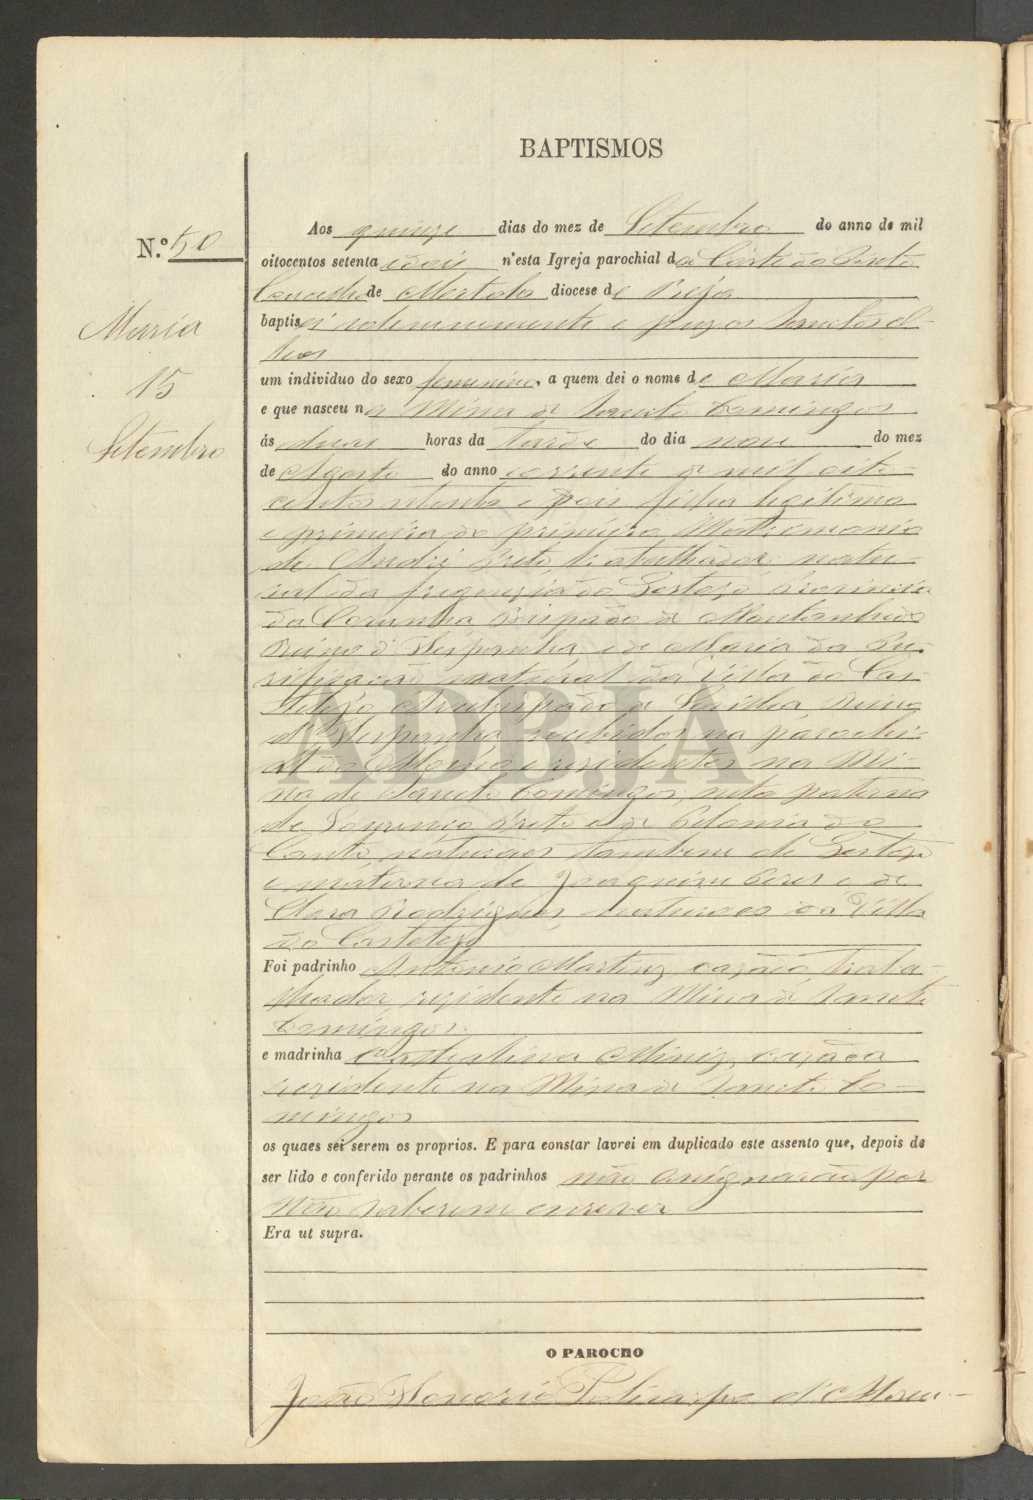 BAPTISMOS
N.º 50
Maria
15
Setembro
Aos quinze dias do mez de Setembro do anno de mil
oitocentos setenta e dois n'esta Igreja parochial da Côrte do Pinto
Concelho de Mertola diocese de Beja
baptisei solemnemente e puz os Sanctos ol-
leos
um individuo do sexo femenino, a quem dei o nome de Maria
e que nasceu na Mina de Sancto Domingos
ás duas horas da tarde do dia nove do mez
de Agosto do anno corrente de mil oito-
centos setenta e dois filha legitima
e primeira do primeiro Matremonio
de André Preto, trabalhador natu-
ral da freguezia do Provincia
da Corunha de
Reino d'Hespanha, e de Maria da Pu-
rificação natural da Villa do Cas-
tilejo de Sevilha Reino
d'Hespanha, recebidos na parochi-
al do e residentes na Mi-
na de Sancto Domingos, neta paterna
de Lourenço Preto e de do
Canto, naturaes tambem de
e materna de Joaquim Peres e de
Clara Rodrigues, naturaes da Villa
do Castelejo
Foi padrinho Antonio Martins, cazado, traba-
lhador, rezidente na Mina de Sancto
Domingos
e madrinha cazada
rezidente na Mina de Sancto Do-
mingos
os quaes sei serem os proprios. E para constar lavrei em duplicado este assento que, depois de
ser lido e conferido perante os padrinhos não assignarão por
não saberem escrever
Era ut supra.
O PAROCHO
João Honorio Policarpo d'
ADBJA